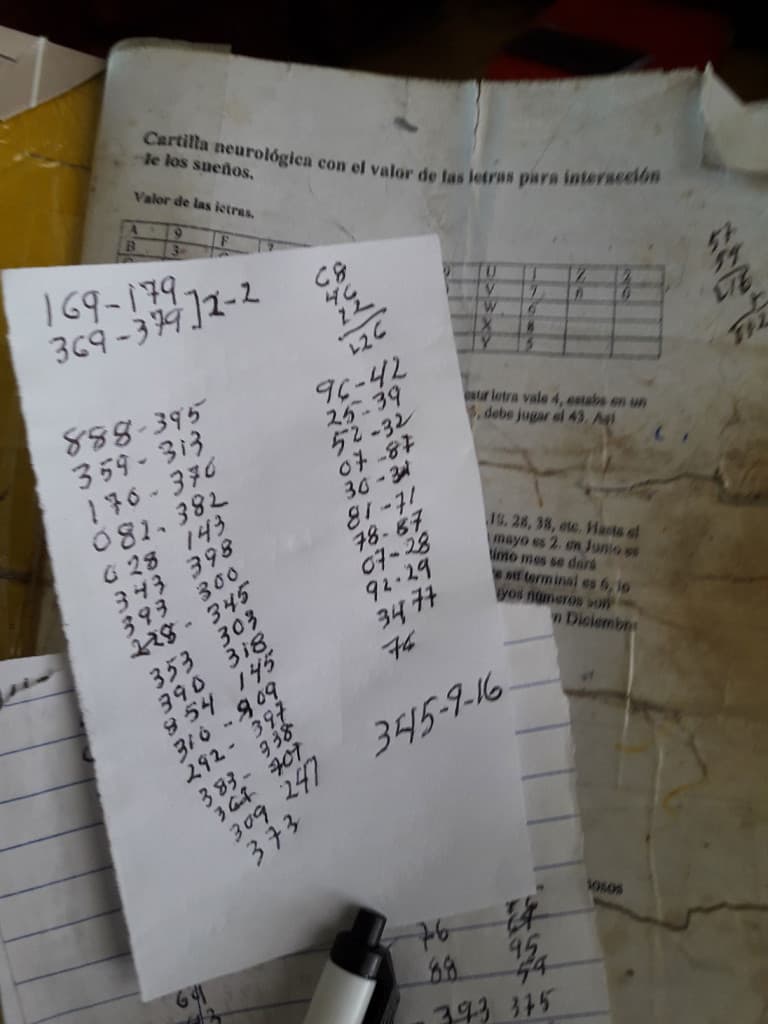 Cartilla neurológica con el valor de las letras para interacción
de los sueños.
Valor de las letras.
A 9 F
B 3
U 1 Z 3
V 7
W 6
X 8
Y 5
57
59
esta letra vale 4, estaba en un
, debe jugar el 43. Así
28, 38, etc. Hasta el
mayo es 2. en Junio es
mes se dará
su terminal es 6, lo
números son
n Diciembre
169-179
369-379] x-2
68
46
22
126
888-395
359-313
170-370
082-382
028 143
343 398
393 300
228-345
353 303
390 318
854 145
310-909
292-397
383-338
367 707
309 247
373
96-42
25-39
52-32
07-87
30-31
81-71
78-87
07-28
92-29
34 77
76
345-9-16
76
88
95
59
393 375